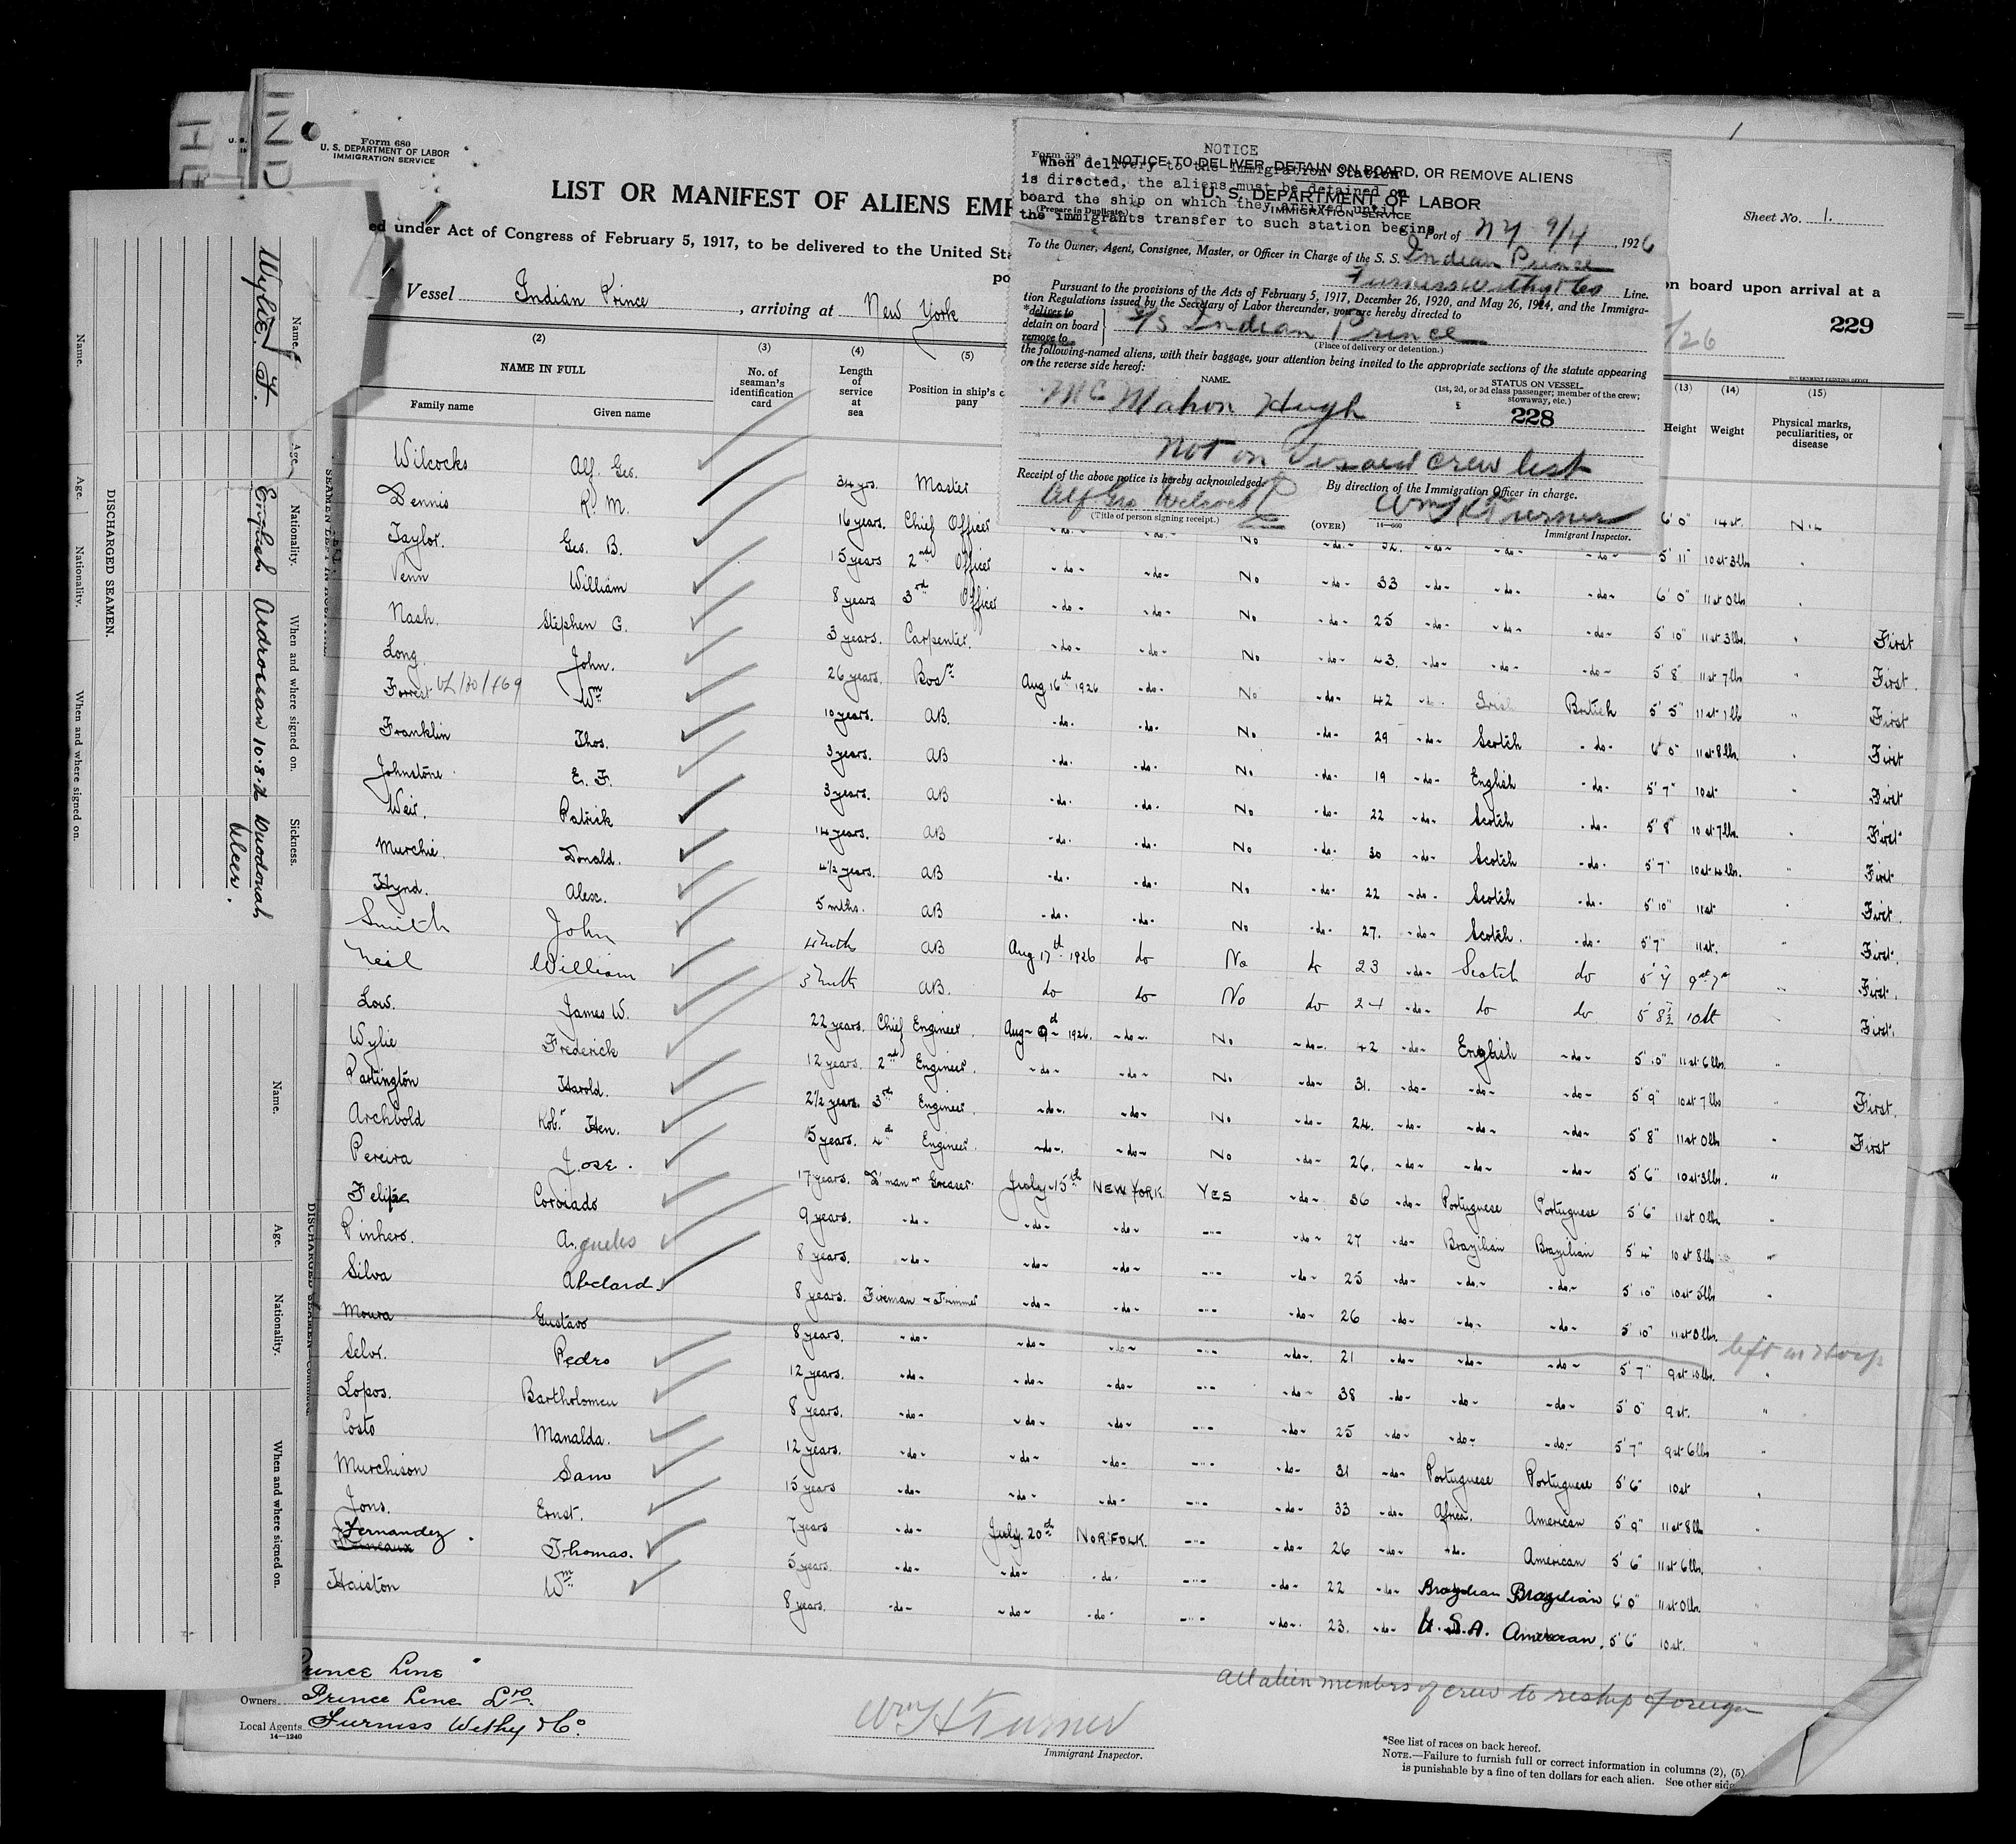 Form 680
U. S. DEPARTMENT OF LABOR
IMMIGRATION SERVICE
LIST OR MANIFEST OF ALIENS EMP
ed under Act of Congress of February 5, 1917, to be delivered to the United Sta
on board upon arrival at a
po
Sheet No. 1.
Vessel Indian Prince, arriving at New York
/26
229
NOTICE
When delivery to the Immigration Station
is directed, the aliens must be detained on
board the ship on which they arrived until
the immigrants transfer to such station begins
Form 559
NOTICE TO DELIVER, DETAIN ON BOARD, OR REMOVE ALIENS
U. S. DEPARTMENT OF LABOR
IMMIGRATION SERVICE
(Prepare in Duplicate)
Port of NY 9/4, 1926
To the Owner, Agent, Consignee, Master, or Officer in Charge of the S. S. Indian Prince
Furness Withy & Co Line.
Pursuant to the provisions of the Acts of February 5, 1917, December 26, 1920, and May 26, 1924, and the Immigra-
tion Regulations issued by the Secretary of Labor thereunder, you are hereby directed to
*deliver to
detain on board
remove to
S/S Indian Prince
(Place of delivery or detention.)
the following-named aliens, with their baggage, your attention being invited to the appropriate sections of the statute appearing
on the reverse side hereof:
NAME.
STATUS ON VESSEL.
(1st, 2d, or 3d class passenger; member of the crew;
stowaway, etc.)
McMahon Hugh
228
Not on visaed crew list
Receipt of the above notice is hereby acknowledged:
By direction of the Immigration Officer in charge.
Alf Geo Wilcocks
Wm H Turner
(Title of person signing receipt.)
(OVER)
Immigrant Inspector.
(2) (3) (4) (5) (13) (14) (15)
NAME IN FULL
Family name
Given name
No. of seaman's identification card
Length of service at sea
Position in ship's c
pany
Height
Weight
Physical marks, peculiarities, or disease
Wilcocks Alf. Geo. 34 yrs. Master 6' 0" 14 st. Nil
Dennis R. M. 16 years. Chief Officer -do- -do- No -do- 32. -do- -do- -do- 5' 11" 10 st 3 lbs
Taylor. Geo. B. 15 years 2nd Officer -do- -do- No -do- 33 -do- -do- -do- 6' 0" 11 st 0 lbs
Venn William 8 years 3rd Officer -do- -do- No -do- 25 -do- -do- -do- 5' 10" 11 st 3 lbs. First
Nash. Stephen G. 3 years. Carpenter. -do- -do- No -do- 43. -do- -do- -do- 5' 8" 11 st 7 lbs First
Long. John. 26 years. Bosn Aug 16th 1926 -do- No -do- 42 -do- Irish British 5' 5" 11 st 1 lb First
Forrest Wm 10 years. AB. -do- -do- No -do- 29 -do- Scotch -do- 6' 0" 11 st 8 lbs. First
Franklin Thos. 3 years. AB -do- -do- No -do- 19 -do- English -do- 5' 7" 10 st First
Johnstone E. F. 3 years. AB -do- -do- No -do- 22 -do- Scotch -do- 5' 8" 10 st 7 lbs. First
Weir. Patrick 14 years. AB -do- -do- No -do- 30 -do- Scotch -do- 5' 7" 10 st 4 lbs. First
Murchie. Donald. 4½ years. AB -do- -do- No -do- 22 -do- Scotch -do- 5' 10" 11 st First
Hynd. Alex. 5 mths. AB -do- -do- No -do- 27. -do- Scotch. -do- 5' 7" 11 st. First
Smith John 4 mths AB Aug 17th 1926 do No do 23 -do- Scotch do First
Neil William 3 mths AB. do do No do 21 -do- do do 5' 8½ 10 st First.
Low. James W. 22 years. Chief Engineer. Aug 1926. -do- No -do- 42 -do- English -do- 5' 10" 11 st 6 lbs.
Wylie Frederick 12 years. 2nd Engineer. -do- -do- No -do- 31. -do- -do- -do- 5' 9" 10 st 7 lbs First.
Partington Harold. 2½ years. 3rd Engineer. -do- -do- No -do- 24. -do- -do- -do- 5' 8" 11 st 0 lbs First
Archbold Robt Hen. 5 years. 4th Engineer. -do- -do- No -do- 26. -do- -do- -do- 5' 6" 10 st 3 lbs.
Pereira Jose. 17 years. D'man & Greaser. July 15th NEW YORK. YES -do- 36 -do- Portuguese Portuguese 5' 6" 11 st 0 lbs
Felipe Coroiado 9 years. -do- -do- -do- -"- -do- 27 -do- Brazilian Brazilian 5' 4" 10 st 8 lbs
Pinhero. A. 8 years. -do- -do- -do- -"- -do- 25 -do- -do- -do- 5' 10" 10 st 5 lbs
Silva Abelard 8 years. Fireman & Trimmer -do- -do- -"- -do- 26 -do- -do- -do- 5' 10" 11 st 0 lbs.
Moura Gustavo 8 years. -do- -do- -do- -"- -do- 21 -do- -do- -do- 5' 7" 9 st 10 lbs. left in Hosp
Selvr. Pedro 12 years. -do- -do- -do- -"- -do- 38 -do- -do- -do- 5' 0" 9 st.
Lopos. Bartholomeu 8 years. -do- -do- -do- -"- -do- 25 -do- -do- -do- 5' 7" 9 st 6 lbs
Costo Manalda. 12 years. -do- -do- -do- -"- -do- 31 -do- Portuguese Portuguese 5' 6" 10 st
Murchison Sam 15 years -do- -do- -do- -"- -do- 33 -do- Africa. American 5' 9" 11 st 8 lbs
Jons. Ernst. 7 years -do- July 20th NORFOLK. -"- -do- 26 -do- -do- American 5' 6" 11 st 6 lbs.
Fernandez Thomas. 5 years. -do- -do- -do- -"- -do- 22 -do- Brazilian Brazilian 6' 0" 11 st 0 lbs.
Haiston Wm 8 years. -do- -do- -do- -"- -do- 23. -do- U. S. A. American. 5' 6" 10 st.
Prince Line
Owners Prince Line Ltd.
Local Agents Furness Withy & Co.
14—1240
Wm H Turner
Immigrant Inspector.
All alien members of crew to reship foreign
*See list of races on back hereof.
NOTE.—Failure to furnish full or correct information in columns (2), (5)
is punishable by a fine of ten dollars for each alien. See other side
Name. Age. Nationality. When and where signed on. Sickness.
Wylie. F. English Ardrossan 10.8.26 Duodenal
Ulcer.
DISCHARGED SEAMEN.
Name. Age. Nationality. When and where signed on.
DISCHARGED SEAMEN—Continued.
Name. Age. Nationality. When and where signed on.